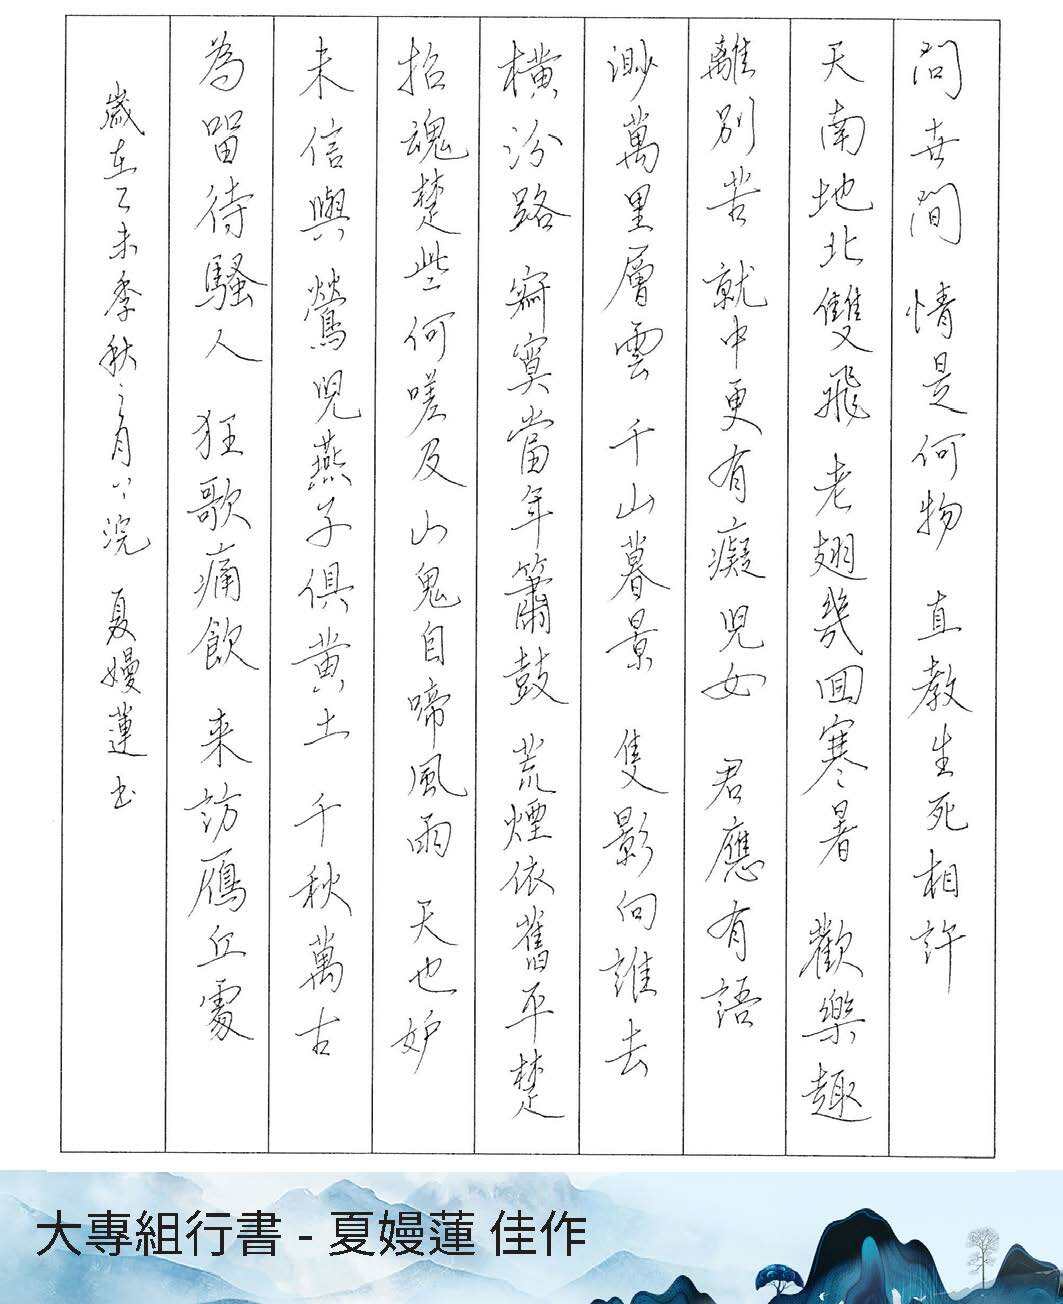 問世間 情是何物 直教生死相許
天南地北雙飛 老翅幾回寒暑 歡樂趣
離別苦 就中更有癡兒女 君應有語
渺萬里層雲 千山暮景 隻影向誰去
橫汾路 寂寞當年簫鼓 荒煙依舊平楚
招魂楚些何嗟及 山鬼自啼風雨 天也妒
未信與 鶯兒燕子俱黃土 千秋萬古
為留待騷人 狂歌痛飲 來訪雁丘處
歲在乙未季秋之月下浣 夏嫚蓮書
大專組行書 - 夏嫚蓮 佳作